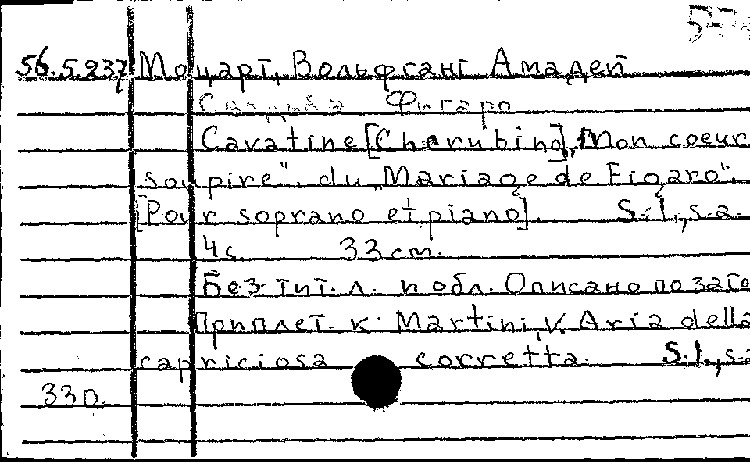 56.5.237 Моцарт, Вольфганг Амадей
Свадьба Фигаро
Cavatine [Cherubino] „Mon coeur
soupire". du „Mariage de Figaro".
[Pour soprano et piano]. S.l., s.a.
4 с. 33 cm.
Без тит. л. и обл. Описано по заго
Приплет. к: Martini, V. Aria della
capriciosa corretta. S.l., s.a
33 п.